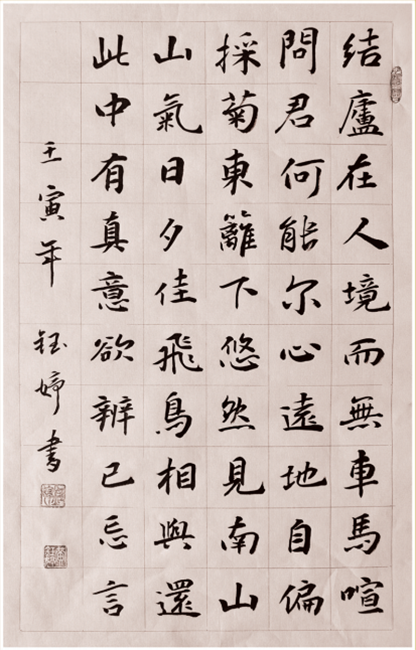 結廬在人境而無車馬喧
問君何能尔心遠地自偏
採菊東籬下悠然見南山
山氣日夕佳飛鳥相與還
此中有真意欲辨已忘言
壬寅年 鈺婷書